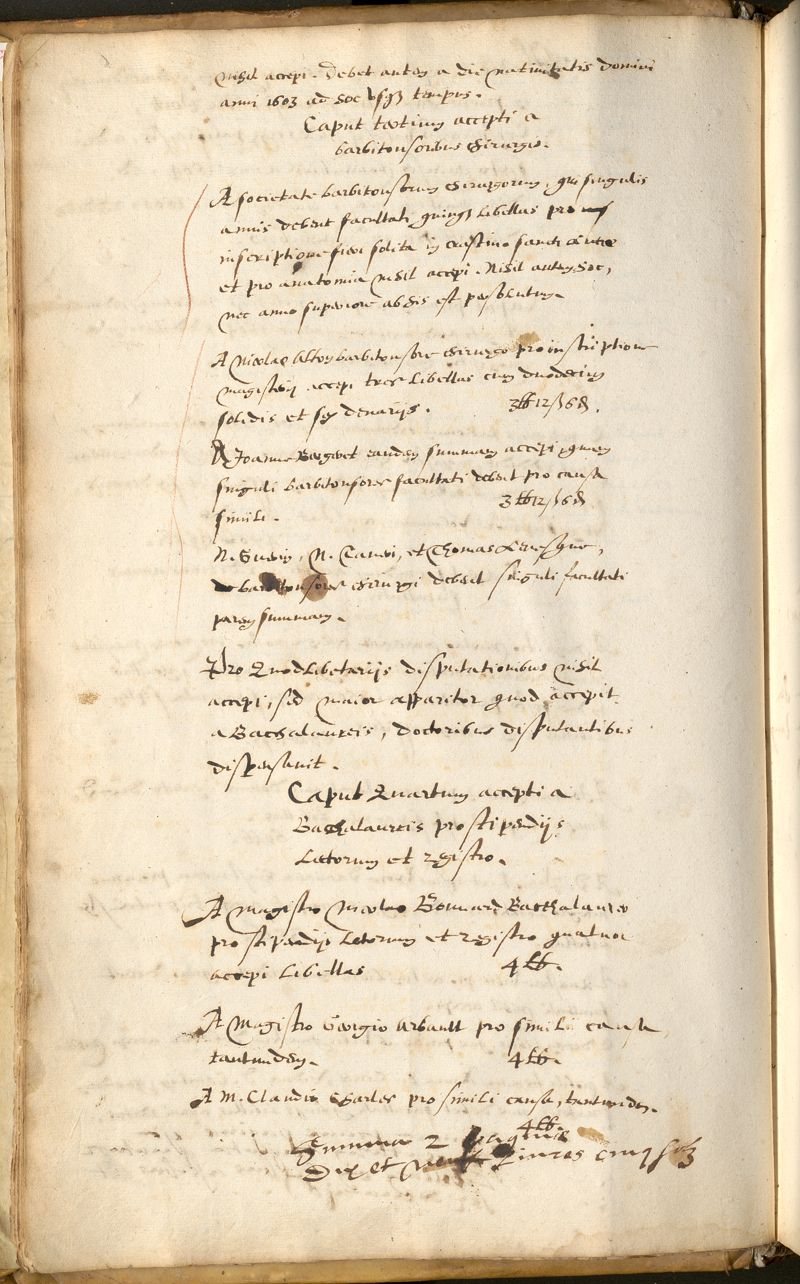 nihil accepi. Debet autem a die nativitatis domini
anni 1603 ad hoc usq3 tempus.
Caput tertium accepti a
barbitonsoribus chirurgis.
A societate barbitonsorum chirurgorum, qui singulis
annis debent facultati quinq3 libellas pro
inscriptione fieri solita in crastino sancti
et pro anatomia nihil accepi. Nihil autem hoc,
nec anno superiore ab his est persolutum.
A Nicolao barbitonsore chirurgo pro inscriptione
magisterij accepi tres libellas cum duodecim
solidis et sex denarijs. 3 ℔ 12 ß 6 d.
A Joanne eandem summam accepi quam
singuli barbitonsores facultati debent pro causa
simili. 3 ℔ 12 ß 6 d
N. , N. , et Thomas ,
barbitonsores chirurgi debent singuli facultati
parem summam.
Pro Quodlibetarijs disputationibus nihil
accepi, sed maior apparitor quod accepit
a Bachalaureis, doctoribus disputantibus
dispensavit.
Caput Quartum accepti a
Bachalaureis pro stipendijs
Lectorum et registro.
A magistro Nicolao Bonnard Bacchalaureo
pro stipendijs Lectorum et registro quatuor
accepi Libellas 4 ℔.
A Magistro Georgio Arbault pro simili causa
tantundem. 4 ℔.
A M. Claudio Charles pro simili causa, tantundem.
4 ℔
Summa 2 paginae
Dix et neuf Livres cinq solz